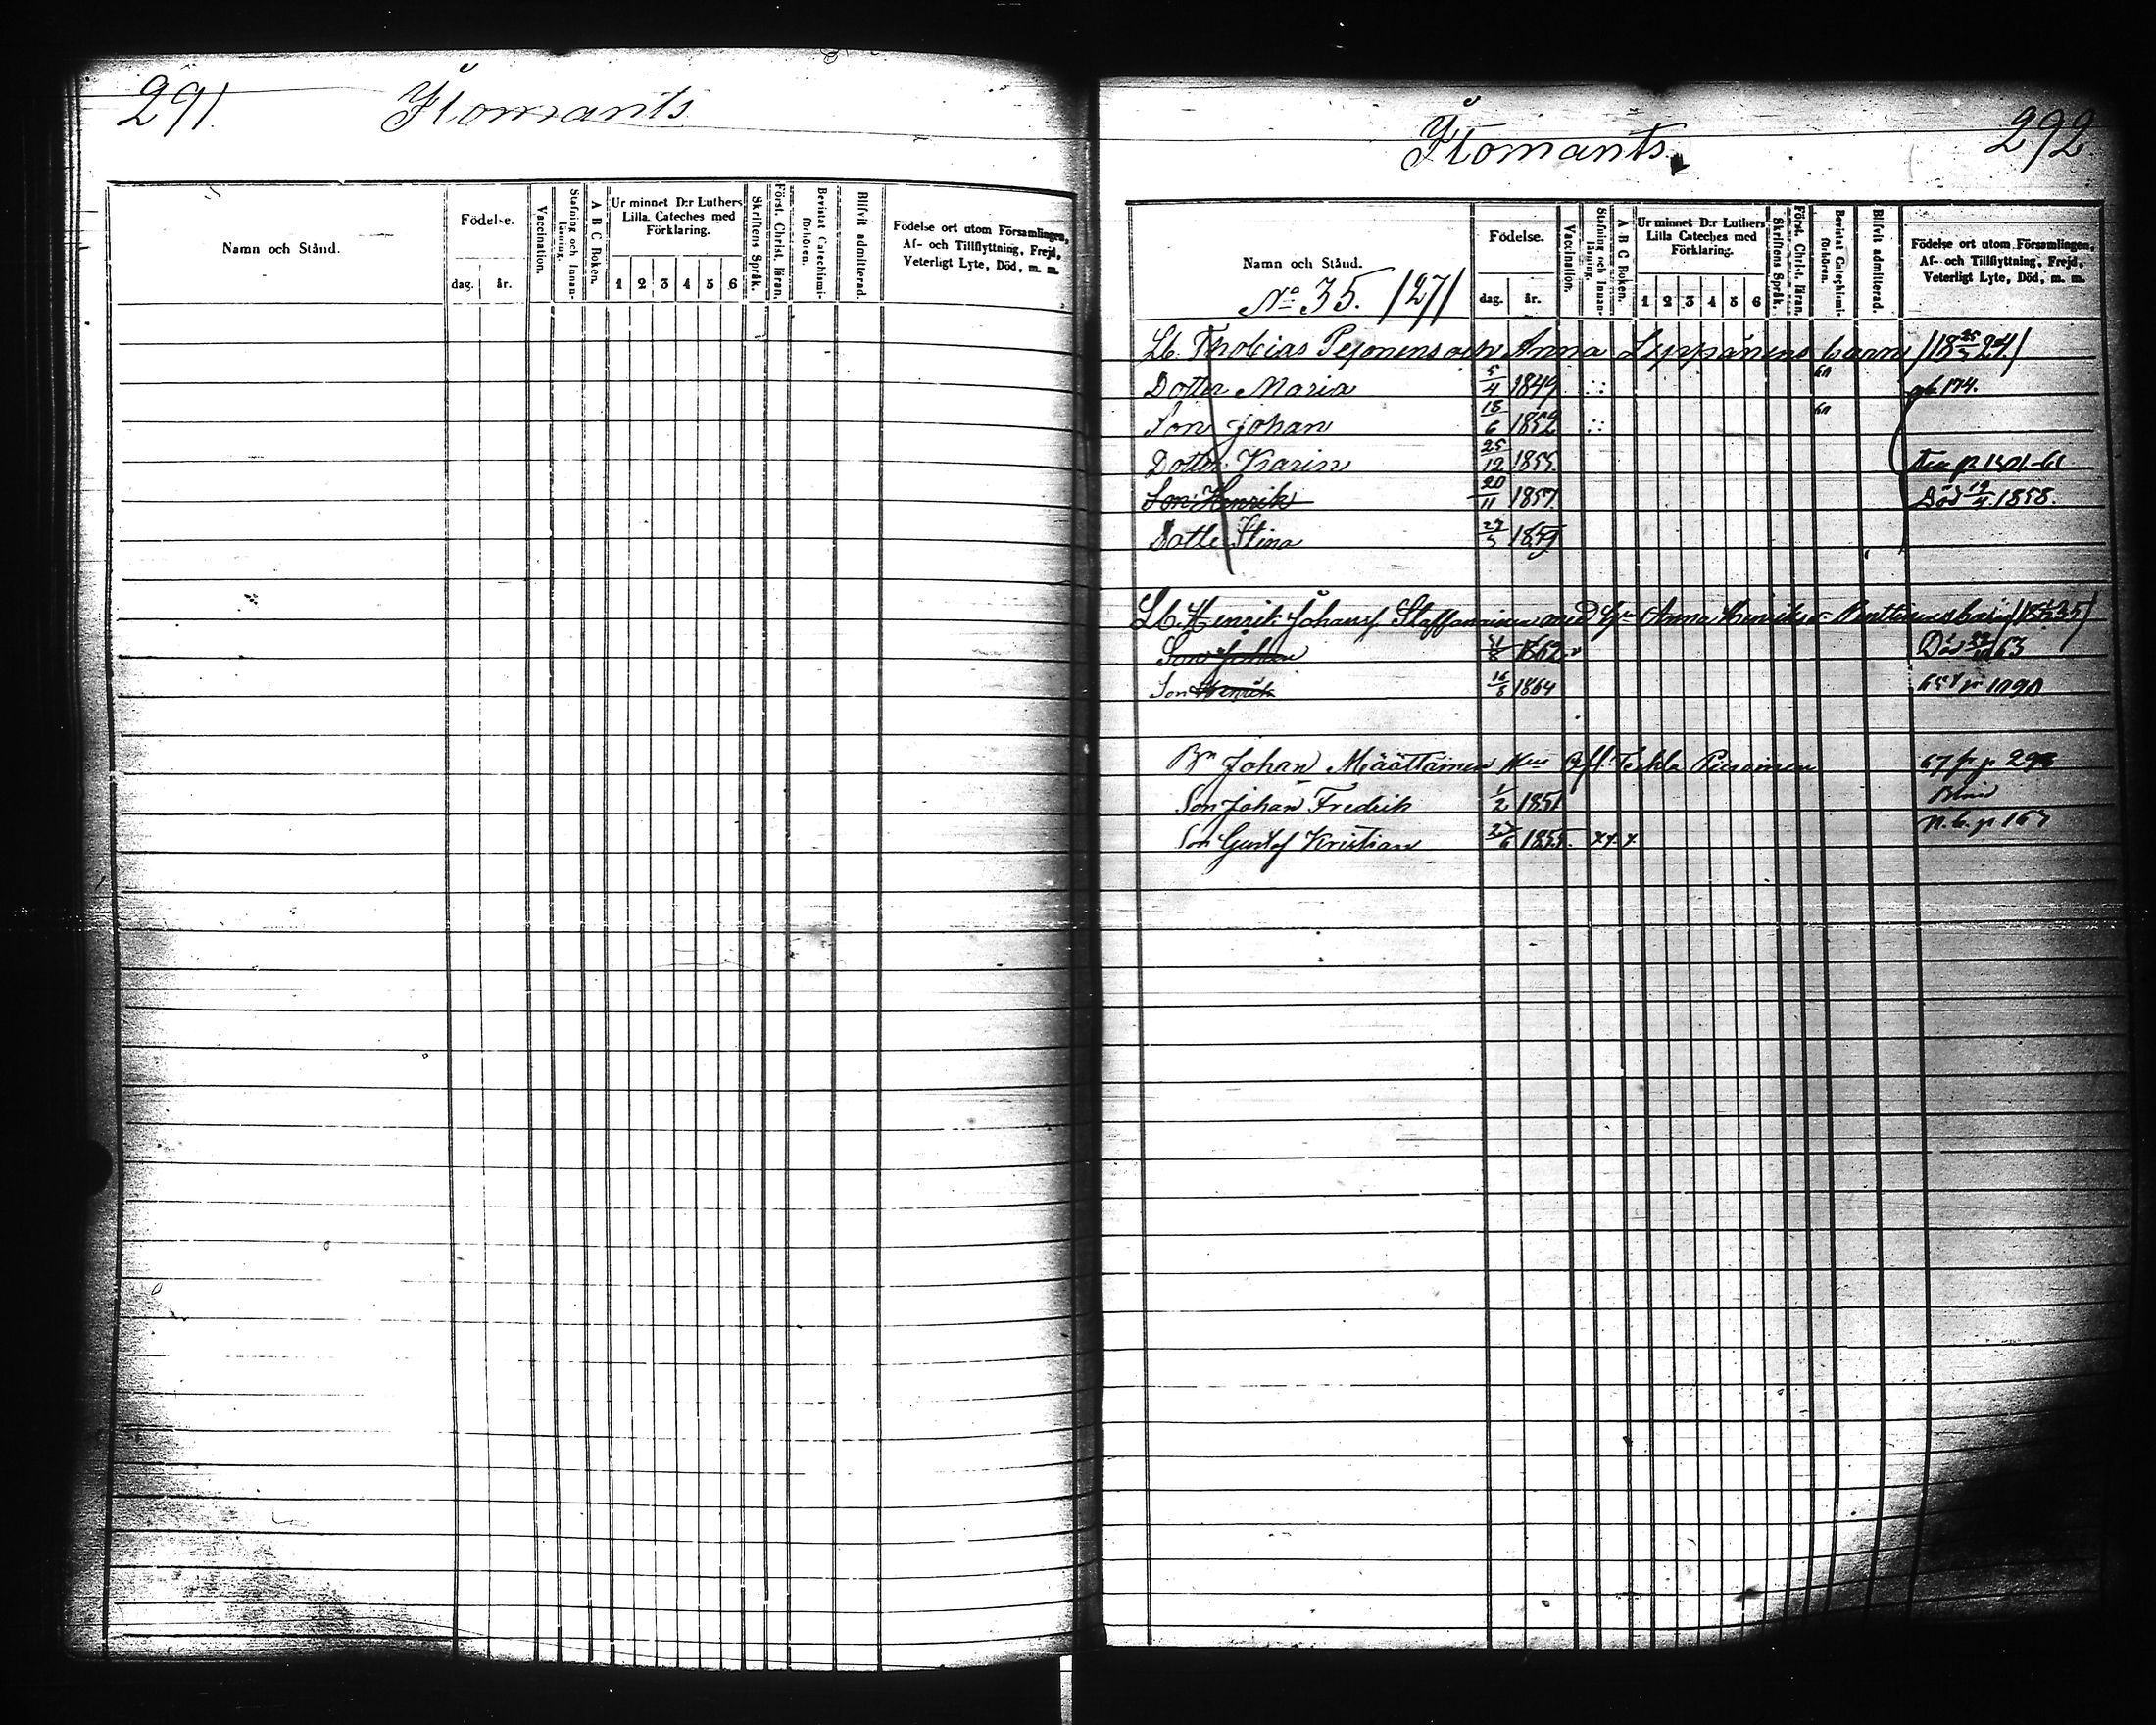 291.
Ilomants
Namn och Stånd.
Födelse.
dag. år.
Vaccination.
Stafning och Innan-läsning.
A B C Boken.
Ur minnet D:r Luthers Lilla Cateches med Förklaring.
1 2 3 4 5 6
Skriftens Språk.
Först. Christ. läran.
Bevistat Catechismi-förhören.
Blifvit admitterad.
Födelse ort utom Församlingen,
Af- och Tillflyttning, Frejd,
Veterligt Lyte, Död, m. m.
Ilomants.
292
Namn och Stånd.
No 35. /27/
Födelse.
dag. år.
Vaccination.
Stafning och Innan-läsning.
A B C Boken.
Ur minnet D:r Luthers Lilla Cateches med Förklaring.
1 2 3 4 5 6
Skriftens Språk.
Först. Christ. läran.
Bevistat Catechismi-förhören.
Blifvit admitterad.
Födelse ort utom Församlingen,
Af- och Tillflyttning, Frejd,
Veterligt Lyte, Död, m. m.
Lb. Thobias Pejonens och Anna Leppänens barn
Dotter Maria 5/4 1849 174.
Son Johan 18/6 1852
Dotter Karin 25/12 1855
Son Henrik 20/11 1857. Död 19/4 1858.
Dotter Stina 1859
Lb. Henrik Johans Staffanainen med Anna
Son Johan 1862 Död 63
Son Henrik 16/5 1864
Johan Määttäinen Tekla 67 p
Son Johan Fredrik 1/2 1851
Son Gustaf Kristian 27/6 1855. p 167